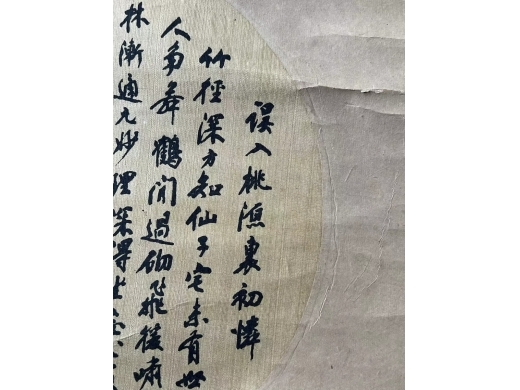 誤入桃源裏初憐
竹徑深方知仙子宅未有世
人尋舞鶴閒過砌飛猿嘯
林漸通元妙理深得坐